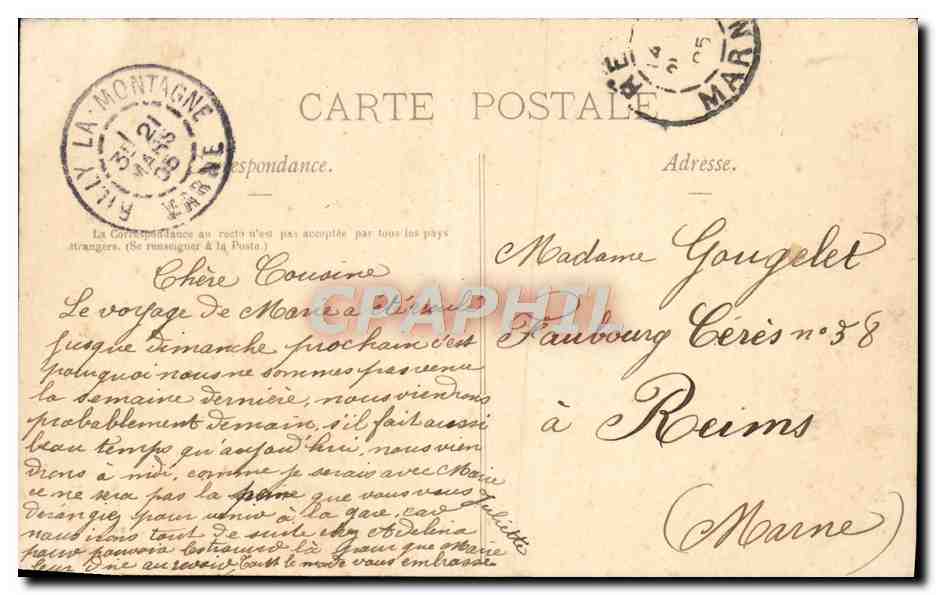 CARTE POSTALE
RILLY LA MONTAGNE
21
MARS
05
MARNE
MARN
Correspondance.
Adresse.
La Correspondance au recto n'est pas acceptée par tous les pays
étrangers. (Se renseigner à la Poste.)
Chère Cousine
Le voyage de Marie a été
jusque dimanche prochain c'est
pourquoi nous ne sommes pas venu
la semaine dernière, nous viendrons
probablement demain, s'il fait aussi
beau temps qu'aujoud'hui, nous vien
drons à midi, comme je serais avec Marie
ce ne sera pas la peine que vous vous
dérangiez pour venir à la gare, car
nous irons tout de suite chez Adelina
pour pouvoir là que Marie
leur dise au revoir Tout le monde vous embrasse
Juliette
Madame Gougelet
Faubourg Cérès n° 58
à Reims
(Marne)
CPAPHIL